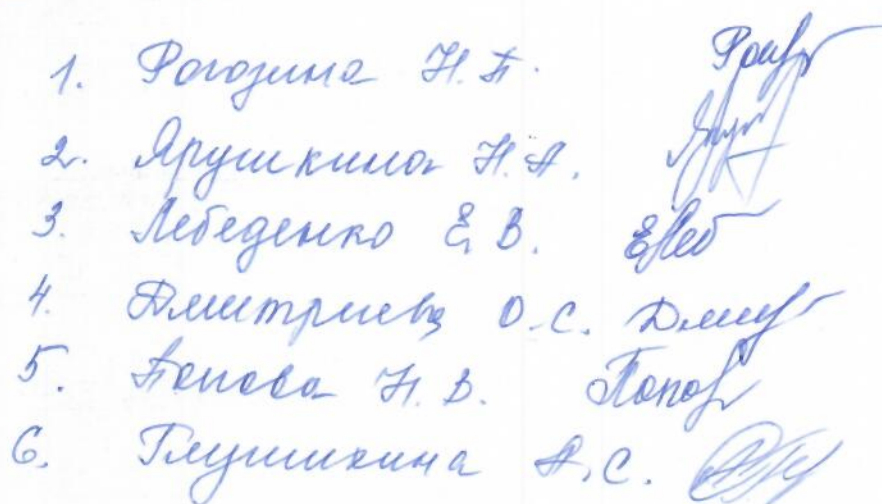 1. Рогозина Н.П.
2. Ярушкина Н.А.
3. Лебеденко Е.В.
4. Дмитриева О.С.
5. Попова Н.В. Попов
6. Глушикина А.С.